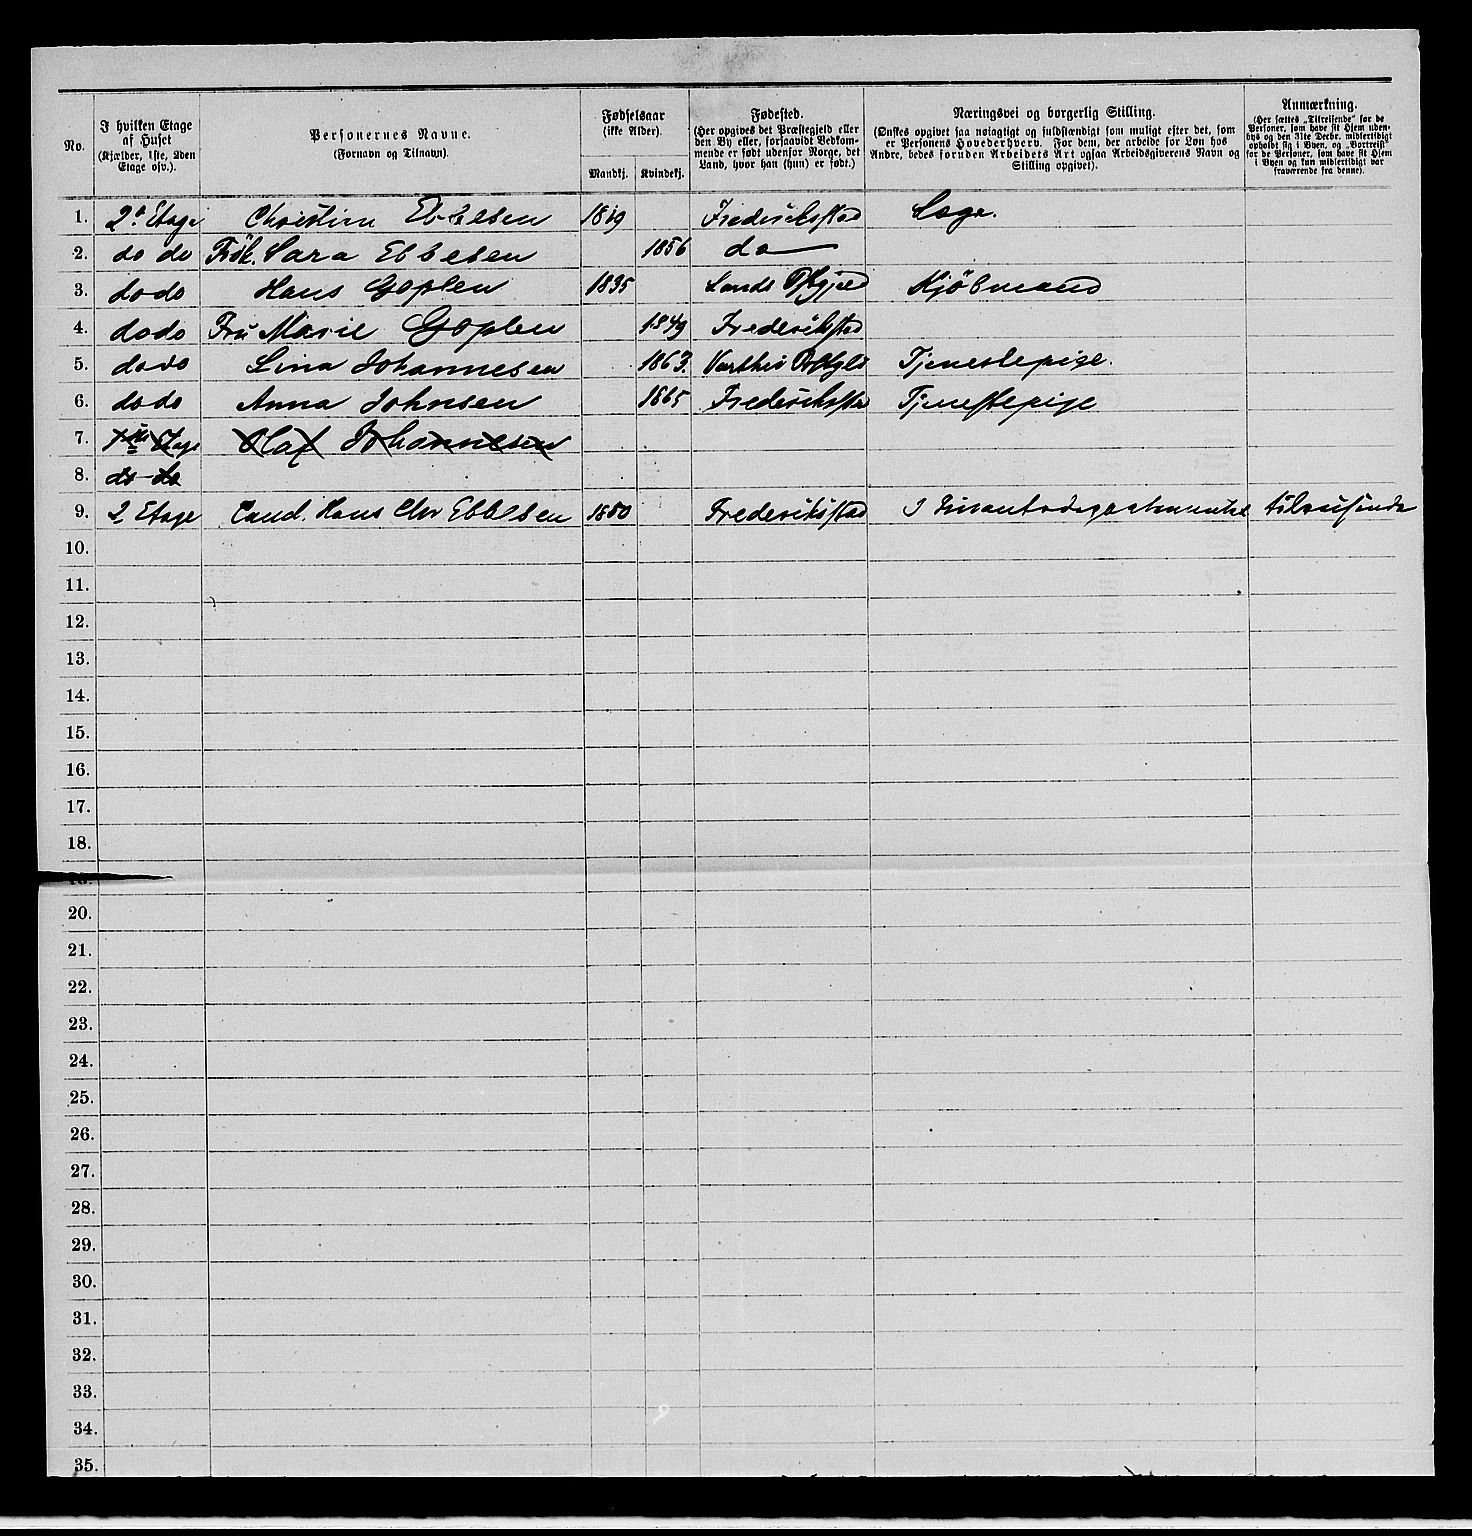 No. I hvilken Etage af Huset (Kjælder, 1ste, 2den Etage osv.). Personernes Navne. (Fornavn og Tilnavn). Fødselsaar (ikke Alder). Mandkj. Kvindekj. Fødested. (Her opgives det Præstegjeld eller den By eller, forsaavidt Vedkommende er født udenfor Norge, det Land, hvor han (hun) er født.) Næringsvei og borgerlig Stilling. (Ønskes opgivet saa nøiagtigt og fuldstændigt som muligt efter det, som er Personens Hovederhverv. For dem, der arbeide for Løn hos Andre, bedes foruden Arbeidets Art ogsaa Arbeidsgiverens Navn og Stilling opgivet). Anmærkning. (Her sættes „Tilreisende“ for de Personer, som have sit Hjem udenbys og den 31te Decbr. midlertidigt opholdt sig i Byen, og „Bortreist“ for de Personer, som have sit Hjem i Byen og kun midlertidigt var fraværende fra denne).
1. 2d Etage Christian Ebbesen 1819 Frederikstad
2. do do Frøk. Sara Ebbesen 1856 do
3. do do Hans Goplen 1835 Lands Kjøbmand
4. do do Fru Marie Goplen 1849 Frederikstad
5. do do Lina Johannesen 1863. Tjenestepige.
6. do do Anna Johnsen 1865 Tjenestepige
7. Etage Olaf Johannesen
8. do do
9. 2 Etage Cand. Hans Chr Ebbesen 1850 Frederikstad I tilreisende
10.
11.
12.
13.
14.
15.
16.
17.
18.
19.
20.
21.
22.
23.
24.
25.
26.
27.
28.
29.
30.
31.
32.
33.
34.
35.